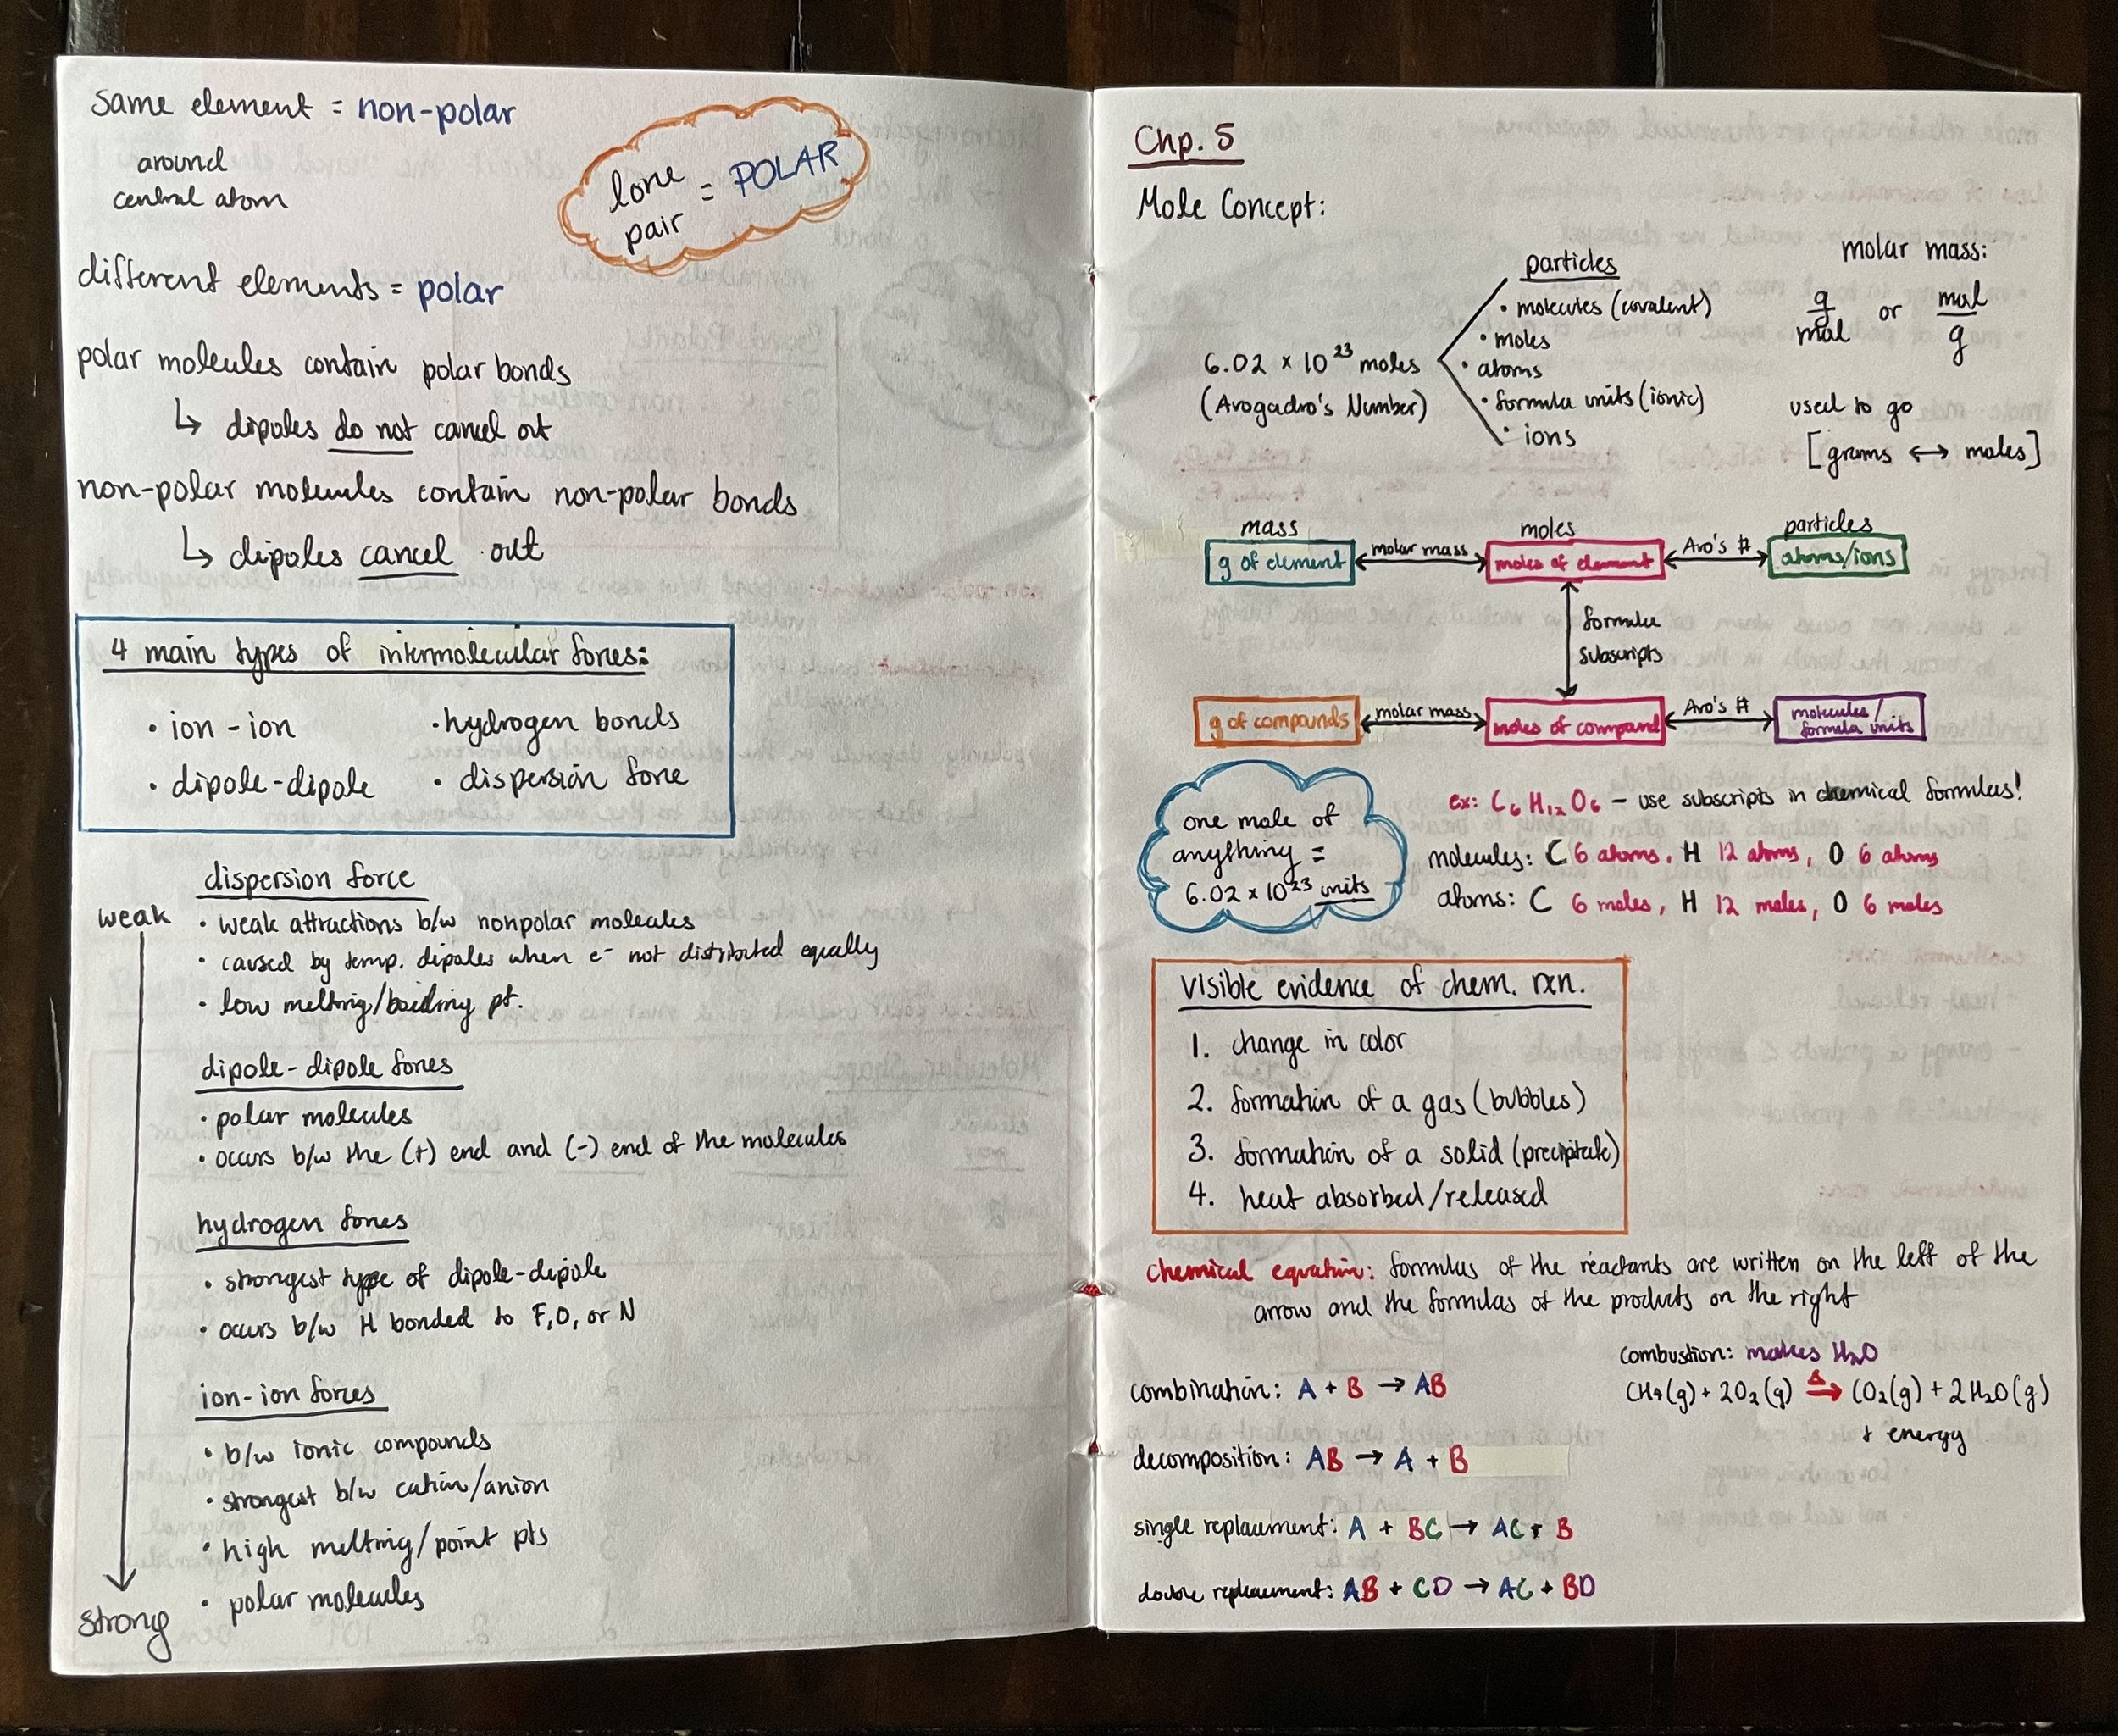 same element = non-polar
around
central atom
lone
pair = POLAR
different elements = polar
polar molecules contain polar bonds
↳ dipoles do not cancel out
non-polar molecules contain non-polar bonds
↳ dipoles cancel out
4 main types of intermolecular forces:
• ion - ion
• hydrogen bonds
• dipole-dipole
• dispersion force
weak
dispersion force
• weak attractions b/w nonpolar molecules
• caused by temp. dipoles when e⁻ not distributed equally
• low melting/boiling pt.
dipole-dipole forces
• polar molecules
• occurs b/w the (+) end and (-) end of the molecules
hydrogen forces
• strongest type of dipole-dipole
• occurs b/w H bonded to F, O, or N
ion-ion forces
• b/w ionic compounds
• strongest b/w cation/anion
• high melting/point pts
• polar molecules
strong
Chp. 5
Mole Concept:
6.02 x 10²³ moles
(Avogadro's Number)
particles
• molecules (covalent)
• moles
• atoms
• formula units (ionic)
• ions
molar mass:
g/mol or mol/g
used to go
[grams ↔ moles]
mass
moles
particles
g of element
molar mass
moles of element
Avo's #
atoms/ions
formula
subscripts
g of compounds
molar mass
moles of compound
Avo's #
molecules/
formula units
one mole of
anything =
6.02 x 10²³ units
ex: C₆H₁₂O₆ - use subscripts in chemical formulas!
molecules: C 6 atoms, H 12 atoms, O 6 atoms
atoms: C 6 moles, H 12 moles, O 6 moles
visible evidence of chem. rxn.
1. change in color
2. formation of a gas (bubbles)
3. formation of a solid (precipitate)
4. heat absorbed/released
chemical equation: formulas of the reactants are written on the left of the
arrow and the formulas of the products on the right
combination: A + B → AB
decomposition: AB → A + B
single replacement: A + BC → AC + B
double replacement: AB + CD → AC + BD
combustion: makes H₂O
CH₄(g) + 2O₂(g) Δ→ CO₂(g) + 2H₂O(g)
+ energy